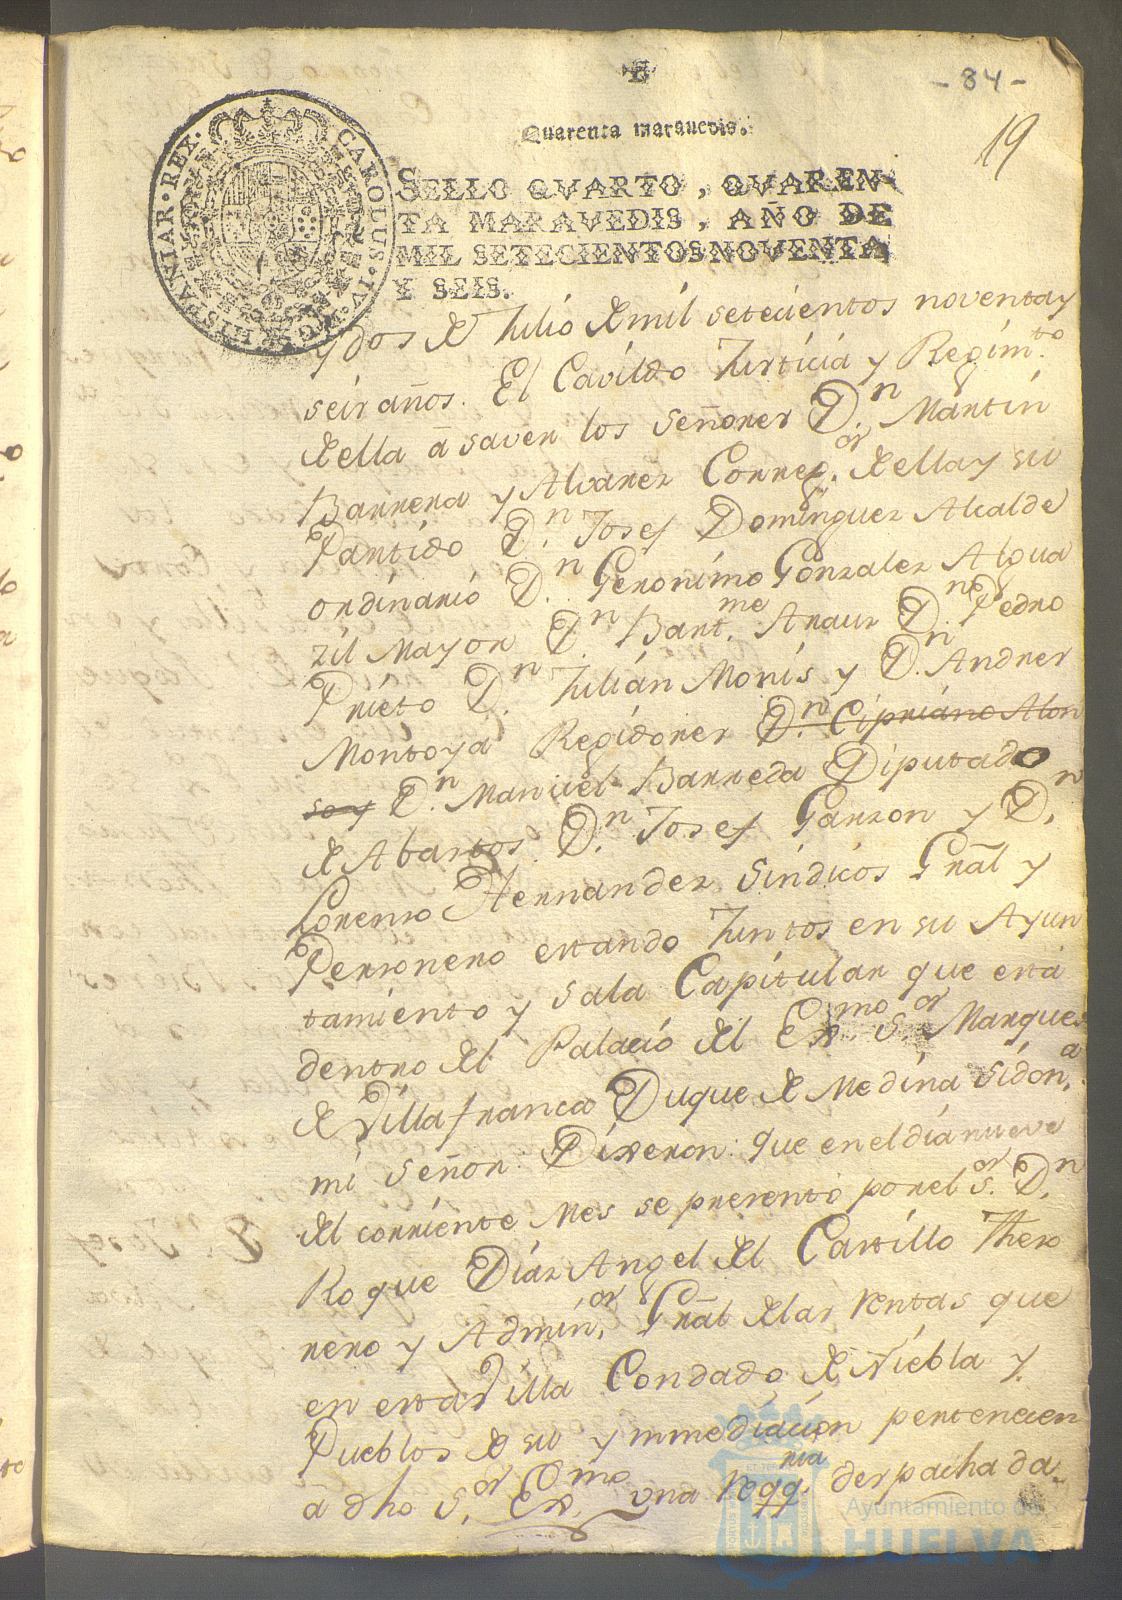 - 84 -
19
Quarenta marauedis.
HISPANIAR · REX · CAROLUS · IV · D · G ·
SELLO QVARTO, QVAREN-
TA MARAVEDIS, AÑO DE
MIL SETECIENTOS NOVENTA
Y SEIS.
y dos de Julio de mil setecientos noventa y
seis años. El Cavildo Justicia y Regim.to
de ella â saver los señores D.n Martin
Barrera y Alvarez Correg.or de ella y su
Partido D.n Josef Dominguez Alcalde
ordinario D.n Geronimo Gonzalez Algua
zil Mayor D.n Bart.me Arauz D.n Pedro
Prieto D.n Julián Monis y D.n Andres
Montoya Regidores D.n Cipriano Alon
so y D.n Manuel Barreda Diputado
de Abastos D.n Josef Garzon y D.n
Lorenzo Hernandez Sindicos Gral y
Personero estando Juntos en su Ayun
tamiento y Sala Capitular que está
dentro del Palacio del Ex.mo S.or Marques
de Villafranca Duque de Medina Sidon.a
mi señor: Dixeron: que en el día nueve
del corriente Mes se presento por el S.or D.n
Roque Diaz Angel del Castillo Theso
rero y Admin.or Gral de las rentas que
en esta Villa Condado de Niebla y
Pueblos de su ymmediación pertenecen
â dho S.or Ex.mo una reqq.ria despachada
Ayuntamiento de
HUELVA